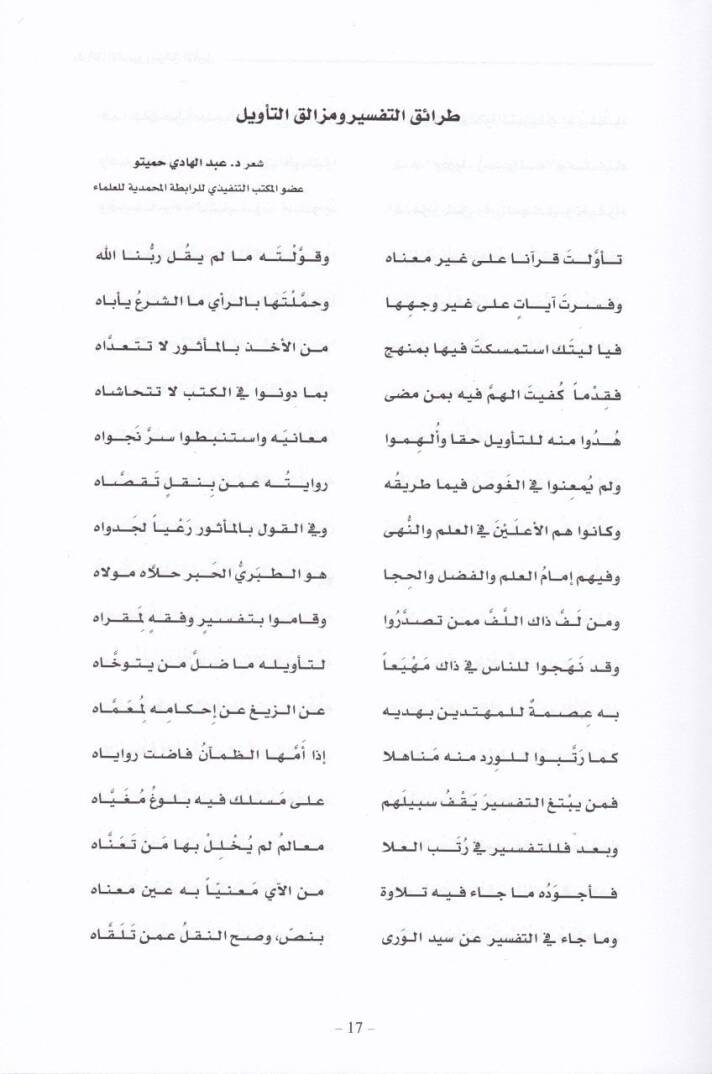 طرائق التفسير ومزالق التأويل
شعر د. عبد الهادي حميتو
عضو المكتب التنفيذي للرابطة المحمدية للعلماء
تـأوَّلتَ قرآنـا على غير مَعناه وقـوَّلْتَـه مـا لم يقُـل ربُّـنـا الله
وفسرتَ آيـاتٍ على غير وجهِهـا وحمَّلْتَهـا بـالـرأي ما الشرعُ يـأباه
فيا ليتَك استمسكتَ فيها بمنهج مـن الأخـذ بـالمـأثـور لا تـتـعـدَّاه
فقِدْماً كُفيتَ الهمَّ فيه بمن مضى بمـا دونـوا في الكتب لا تتحاشاه
هُـدُوا منه للتأويل حقـا وأُلـهِمـوا معانيَه واستنبطوا سرَّ نَجـواه
ولم يُمعِنوا في الغَوص فيما طريقُه روايتُـه عمـن بِـنـقـلٍ تَـقـصَّـاه
وكانوا هم الأعلَيْنَ في العلم والنُّهى وفي القول بالمأثور رَعْيـاً لجَدواه
وفيهم إمـامُ العلم والفضل والحِجـا هـو الـطـبَريُّ الحَبـر حـلاَّه مـولاه
ومـن لَـفَّ ذاك اللَّفَّ ممـن تصـدَّرُوا وقـامـوا بتفسيرٍ وفـقـهٍ لِمَقـراه
وقـد نَهَجوا للناس في ذاك مَهْيَعـاً لتـأويلـه مـا ضـلَّ مـن يـتـوخَّـاه
به عِصمةٌ للمهتدين بهديه عن الزيغ عن إحـكـامِـه لمُعَـمَّـاه
كمـا رَتَّبـوا للـورد منـه مَـناهلا إذا أَمَّهـا الظمـآنُ فاضت روايـاه
فمن يبْتغ التفسيرَ يَقفُ سبيلَهم على مَسلك فيـه بـلـوغُ مُغَـيَّـاه
وبعـد فللتفسير في رُتَـب العـلا معـالمُ لم يُخْـلِلْ بهـا مَـن تَعَنَّـاه
فـأجـوَدُه مـا جـاء فيـه تـلاوة من الآي مَعنيّـاً بـه عـين معنـاه
ومـا جاء في التفسير عن سيد الـوَرى بـنـصّ، وصـح النقلُ عمـن تَلَقَّـاه
- 17 -